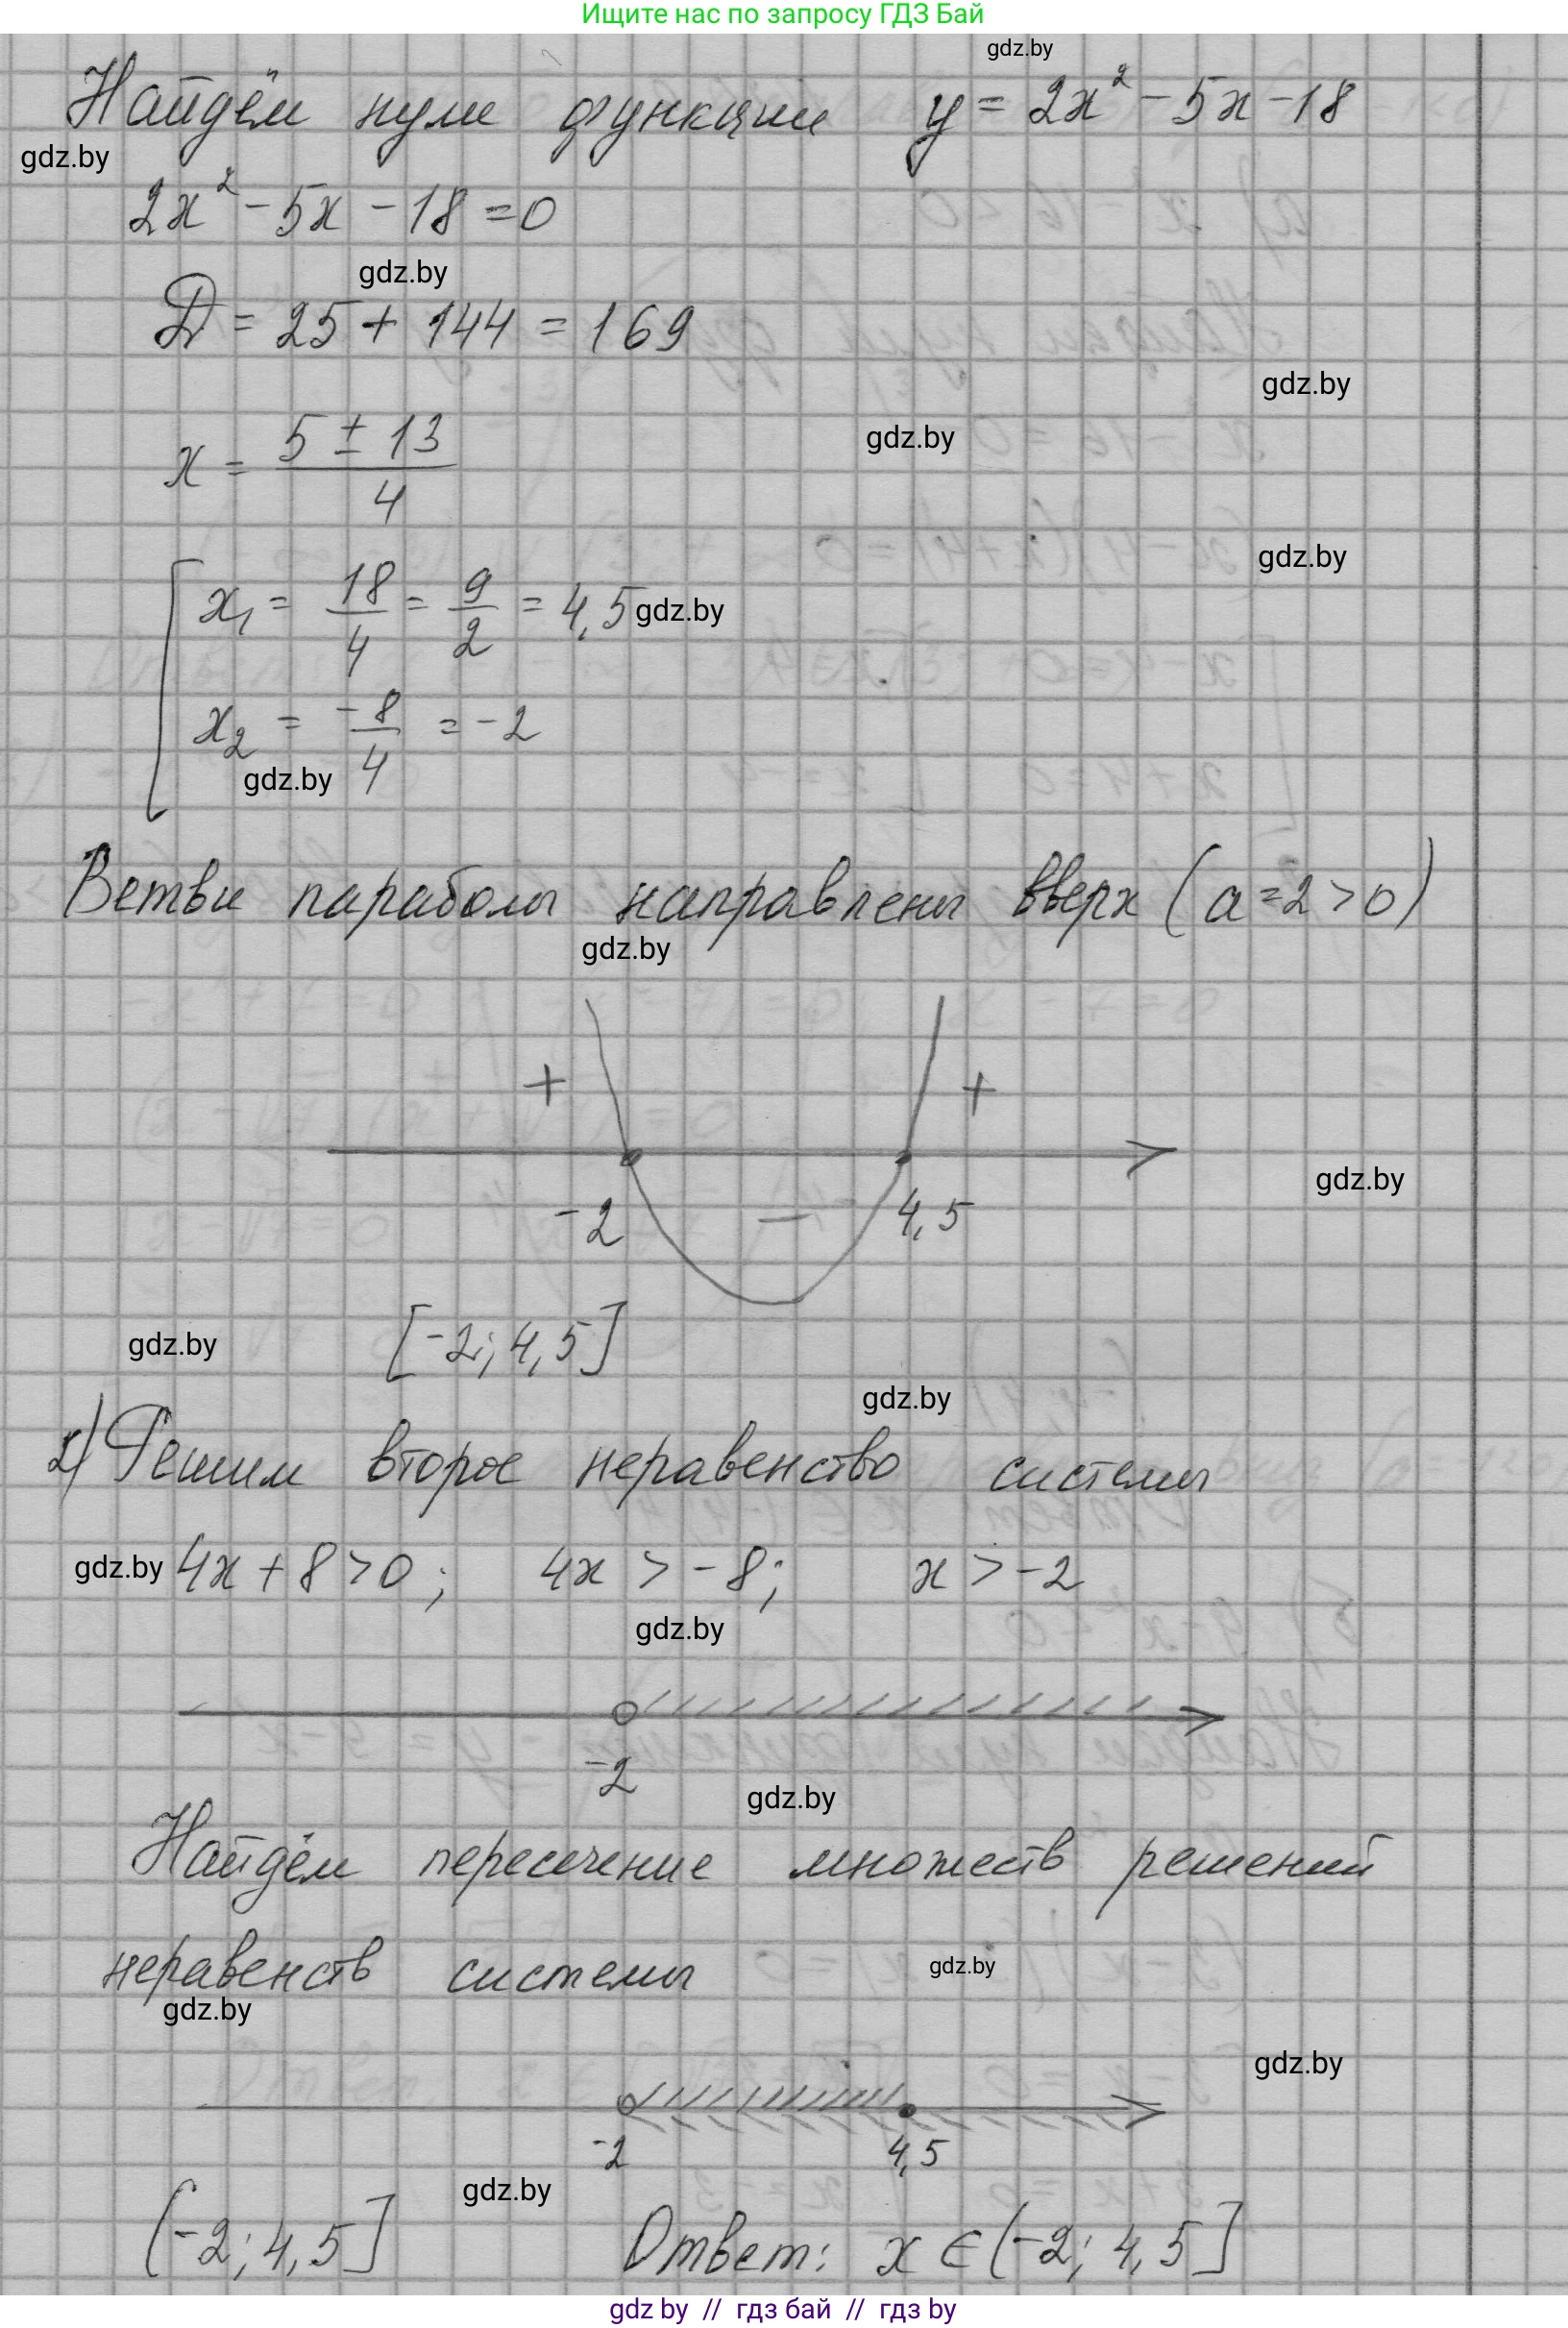 Ищите нас по запросу ГДЗ Бай
gdz.by
Найдём нули функции y = 2x² - 5x - 18
gdz.by
2x² - 5x - 18 = 0
gdz.by
D = 25 + 144 = 169
gdz.by
gdz.by
x = (5 ± 13)/4
gdz.by
[ x₁ = 18/4 = 9/2 = 4,5 gdz.by
x₂ = -8/4 = -2
gdz.by
Ветви параболы направлены вверх (a = 2 > 0)
gdz.by
+ +
gdz.by
-2 — 4,5
gdz.by [-2; 4,5]
gdz.by
2) Решим второе неравенство системы
gdz.by 4x + 8 > 0; 4x > -8; x > -2
gdz.by
-2
gdz.by
Найдём пересечение множеств решений
неравенств системы gdz.by
gdz.by
gdz.by
-2 4,5
gdz.by
(-2; 4,5] Ответ: x ∈ (-2; 4,5]
gdz by // гдз бай // гдз by